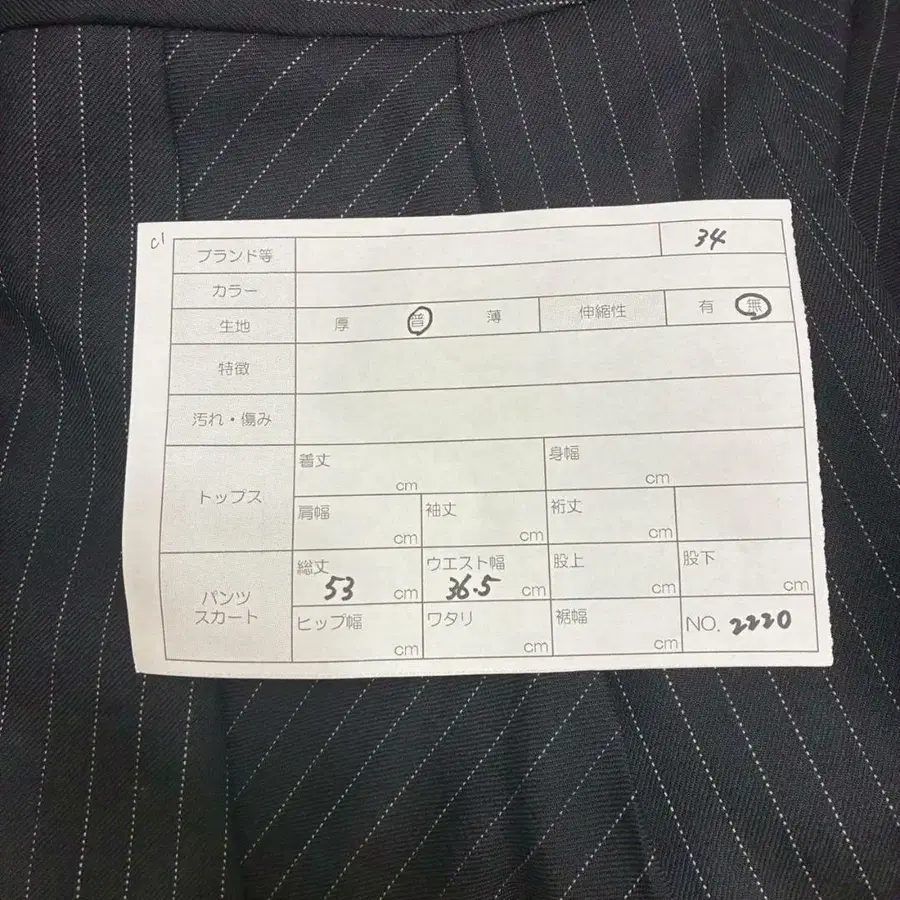 c1
ブランド等 34
カラー
生地 厚 普 薄 伸縮性 有 無
特徴
汚れ・傷み
トップス
着丈 cm 身幅 cm
肩幅 cm 袖丈 cm 裄丈 cm
パンツ
スカート
総丈 53 cm ウエスト幅 36.5 cm 股上 cm 股下 cm
ヒップ幅 cm ワタリ cm 裾幅 cm NO. 2220